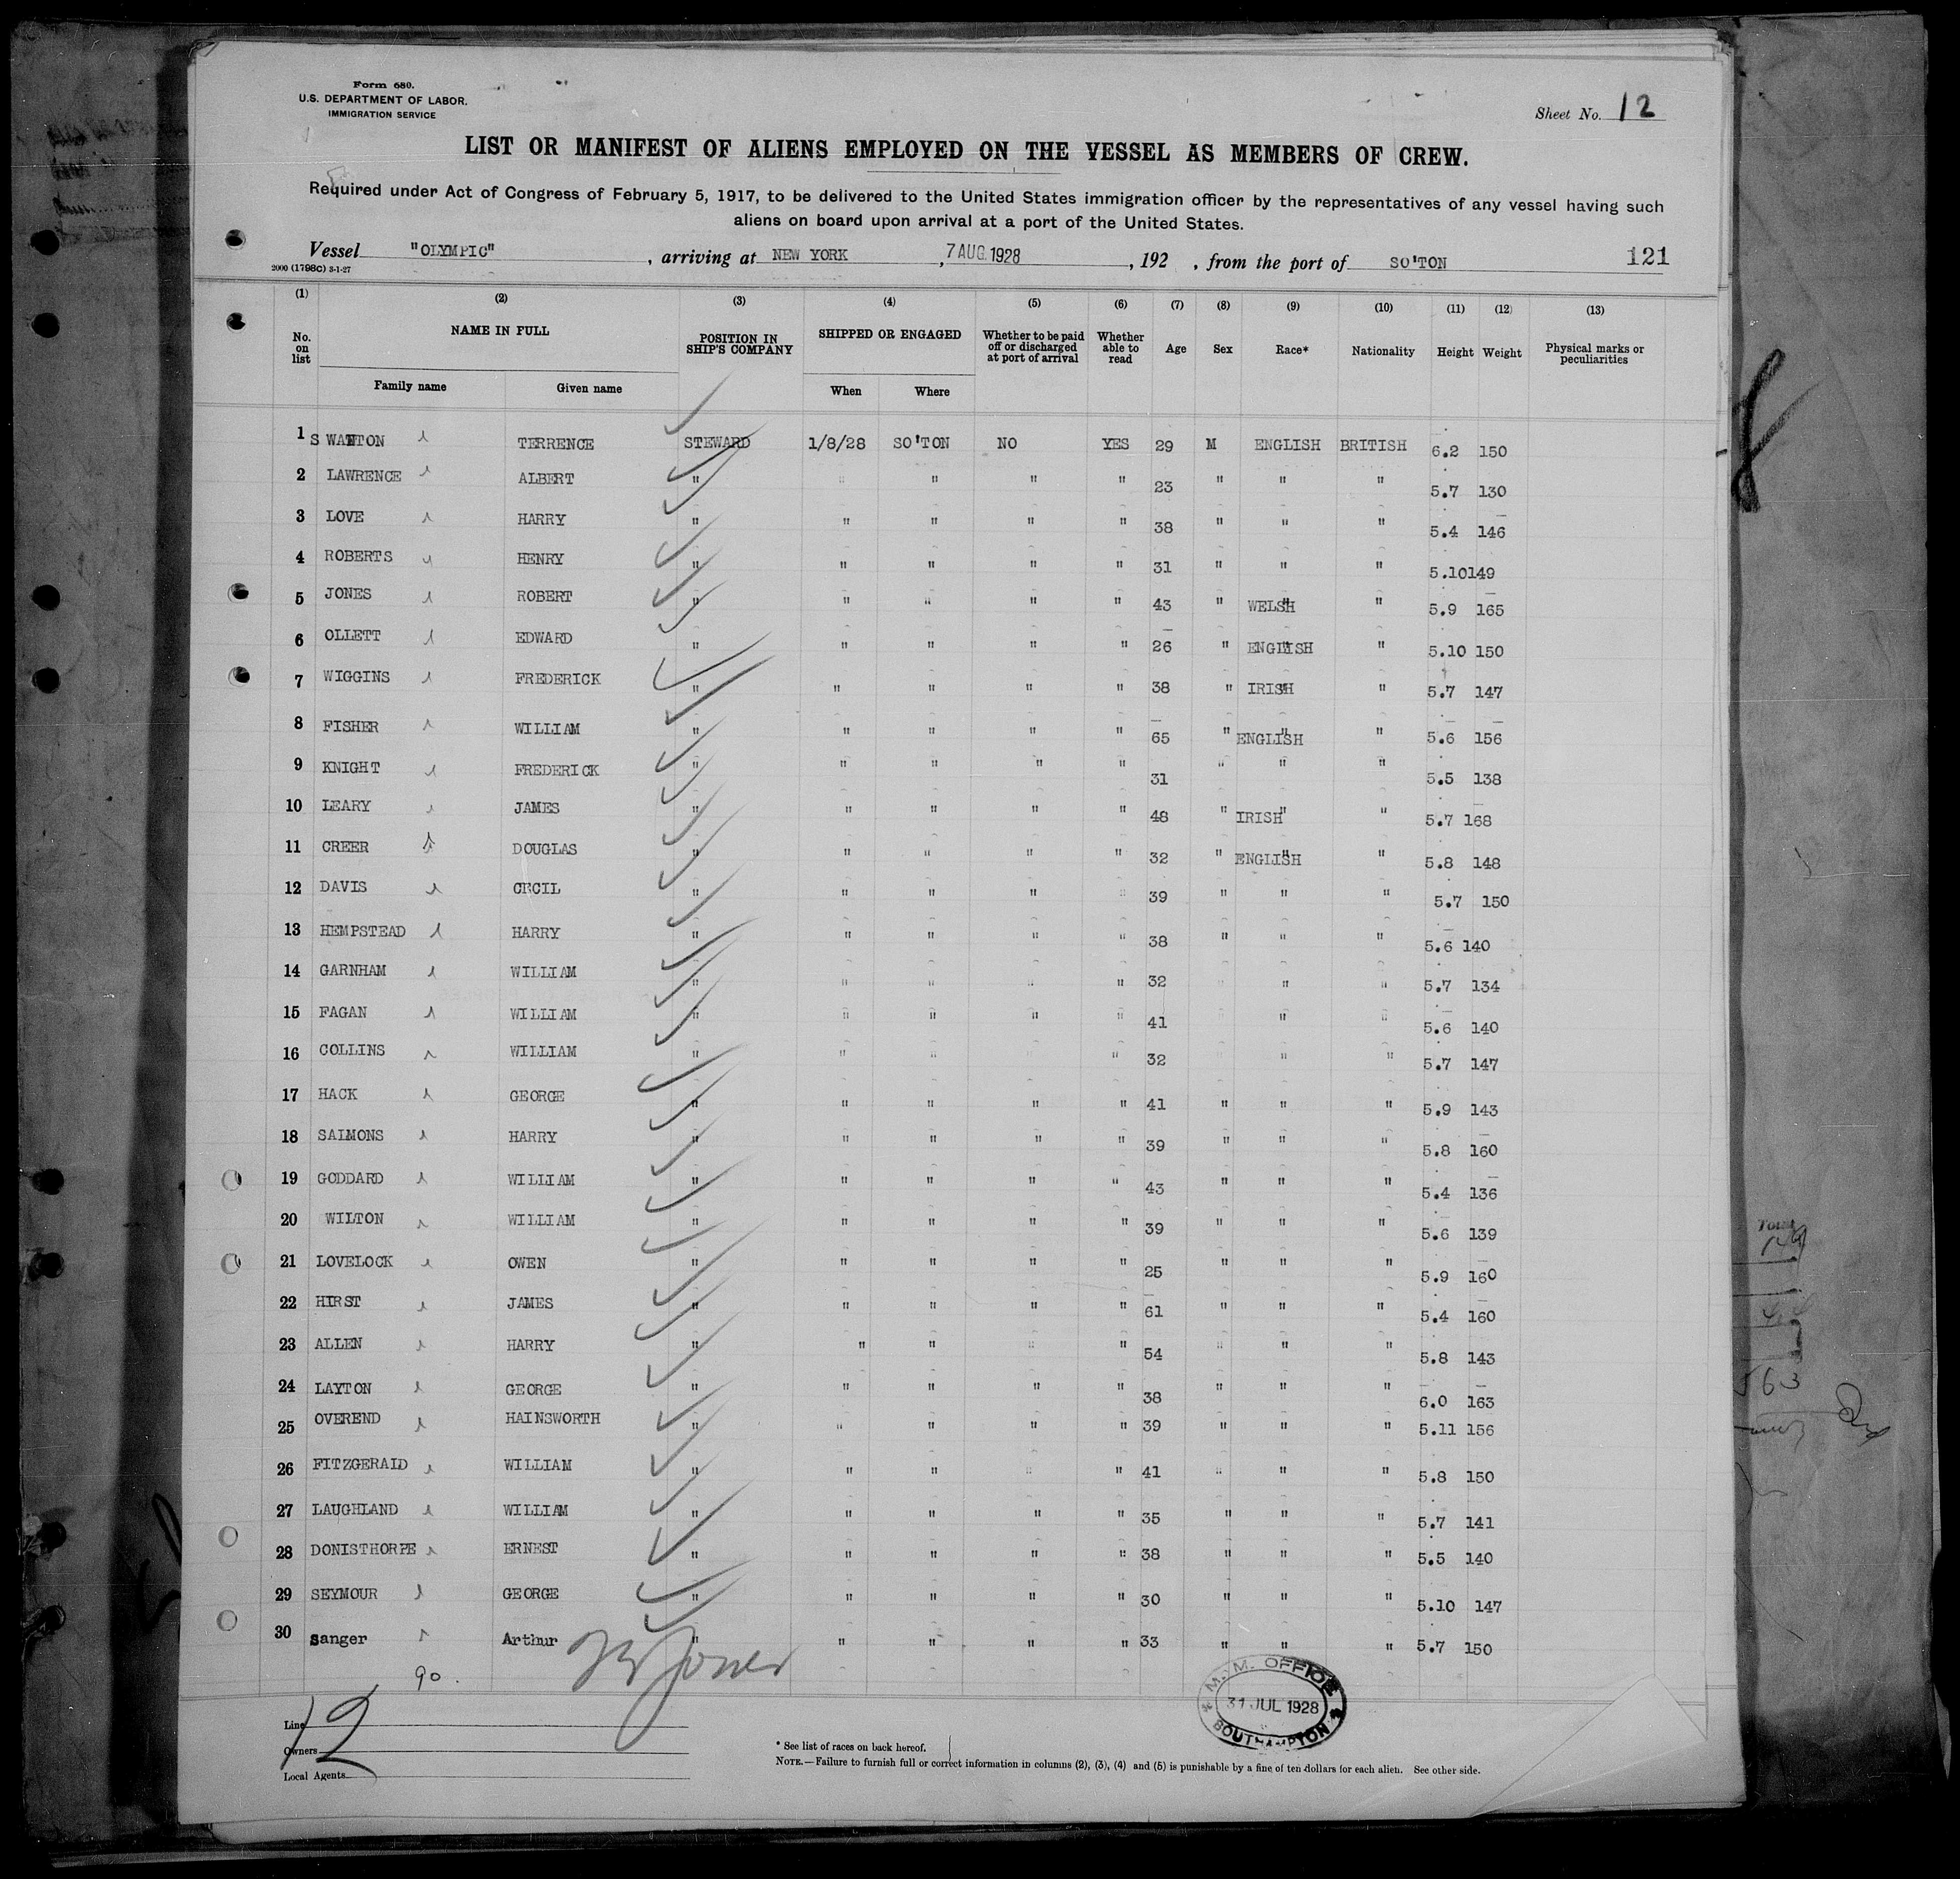 Form 680.
U.S. DEPARTMENT OF LABOR.
IMMIGRATION SERVICE
Sheet No. 12
LIST OR MANIFEST OF ALIENS EMPLOYED ON THE VESSEL AS MEMBERS OF CREW.
Required under Act of Congress of February 5, 1917, to be delivered to the United States immigration officer by the representatives of any vessel having such
aliens on board upon arrival at a port of the United States.
Vessel "OLYMPIC", arriving at NEW YORK, 7 AUG. 1928, 192 , from the port of SO'TON 121
2000 (1798C) 3-1-27
(1) (2) (3) (4) (5) (6) (7) (8) (9) (10) (11) (12) (13)
No. on list NAME IN FULL POSITION IN SHIP'S COMPANY SHIPPED OR ENGAGED Whether to be paid off or discharged at port of arrival Whether able to read Age Sex Race* Nationality Height Weight Physical marks or peculiarities
Family name Given name When Where
1 SWANTON TERRENCE STEWARD 1/8/28 SO'TON NO YES 29 M ENGLISH BRITISH 6.2 150
2 LAWRENCE ALBERT " " " " " 23 " " " 5.7 130
3 LOVE HARRY " " " " " 38 " " " 5.4 146
4 ROBERTS HENRY " " " " " 31 " " " 5.10 149
5 JONES ROBERT " " " " " 43 " WELSH " 5.9 165
6 OLLETT EDWARD " " " " " 26 " ENGLISH " 5.10 150
7 WIGGINS FREDERICK " " " " " 38 " IRISH " 5.7 147
8 FISHER WILLIAM " " " " " 65 " ENGLISH " 5.6 156
9 KNIGHT FREDERICK " " " " " 31 " " " 5.5 138
10 LEARY JAMES " " " " " 48 " IRISH " 5.7 168
11 CREER DOUGLAS " " " " " 32 " ENGLISH " 5.8 148
12 DAVIS CECIL " " " " " 39 " " " 5.7 150
13 HEMPSTEAD HARRY " " " " " 38 " " " 5.6 140
14 GARNHAM WILLIAM " " " " " 32 " " " 5.7 134
15 FAGAN WILLIAM " " " " " 41 " " " 5.6 140
16 COLLINS WILLIAM " " " " 32 " " 5.7 147
17 HACK GEORGE " " " " " 41 " " " 5.9 143
18 SALMONS HARRY " " " " " 39 " " " 5.8 160
19 GODDARD WILLIAM " " " " " 43 " " " 5.4 136
20 WILTON WILLIAM " " " " " 39 " " " 5.6 139
21 LOVELOCK OWEN " " " " " 25 " " " 5.9 160
22 HIRST JAMES " " " " " 61 " " " 5.4 160
23 ALLEN HARRY " " " " " 54 " " " 5.8 143
24 LAYTON GEORGE " " " " " 38 " " " 6.0 163
25 OVEREND HAINSWORTH " " " " " 39 " " " 5.11 156
26 FITZGERALD WILLIAM " " " " " 41 " " " 5.8 150
27 LAUGHLAND WILLIAM " " " " " 35 " " " 5.7 141
28 DONISTHORPE ERNEST " " " " " 38 " " " 5.5 140
29 SEYMOUR GEORGE " " " " " 30 " " " 5.10 147
30 Sanger Arthur " " " " " 33 " " " 5.7 150
90.
Jones
M. M. OFFICE
31 JUL 1928
SOUTHAMPTON
12
Line
Owners
Local Agents
* See list of races on back hereof.
NOTE.—Failure to furnish full or correct information in columns (2), (3), (4) and (5) is punishable by a fine of ten dollars for each alien. See other side.